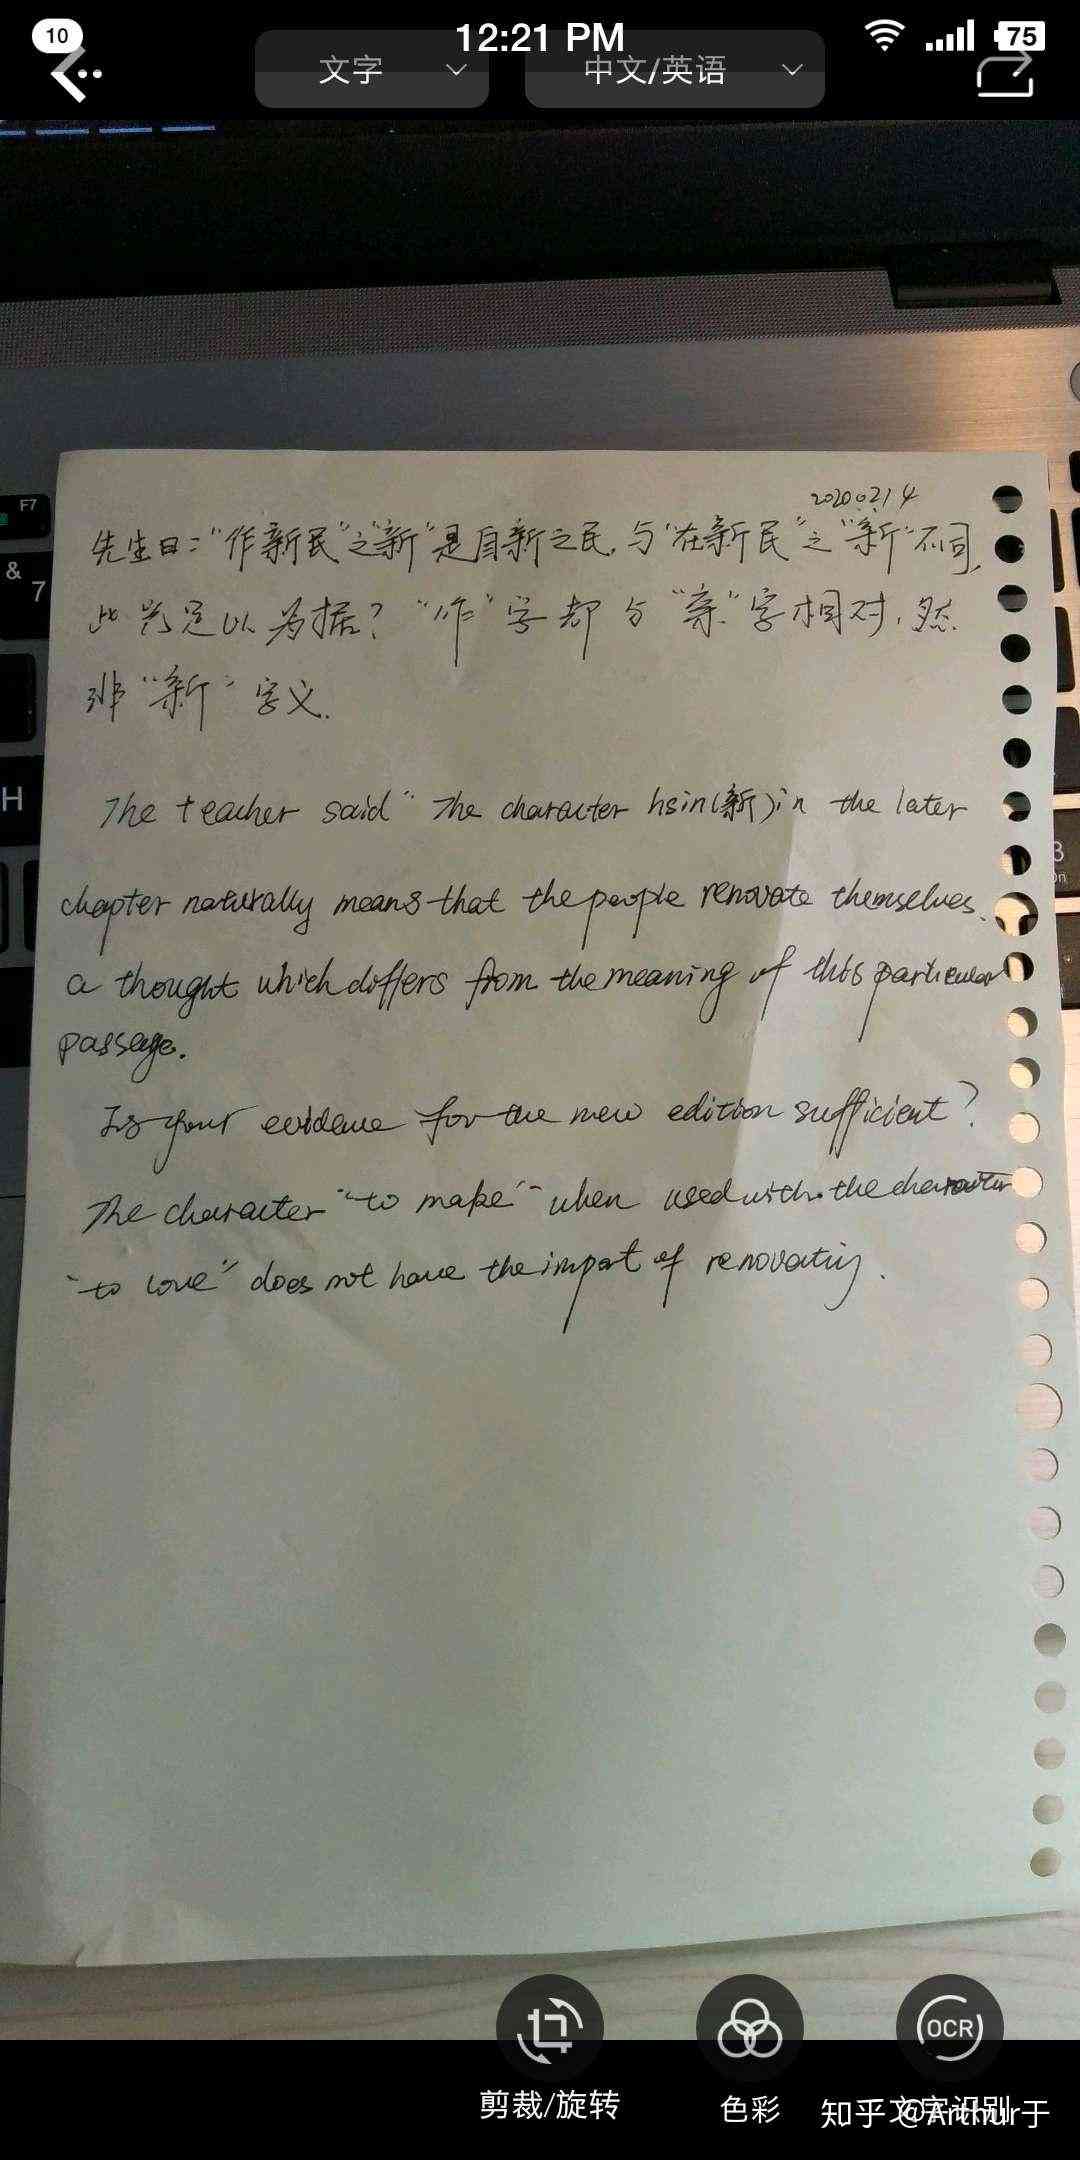 10
12:21 PM
75
文字
中文/英语
F7
&
7
H
20200214
先生曰：“作新民”之“新”是自新之民，与“在新民”之“新”不同，
此岂足以为据？“作”字却与“亲”字相对，然
非“新”字义．
The teacher said“ The character hsin(新)in the later
chapter naturally means that the people renovate themselves.
a thought which differs from the meaning of this particular
passage.
Is your evidence for the new edition sufficient?
The character “to make” when used with the character
“to love” does not have the import of renovating.
OCR
剪裁/旋转
色彩
文字识别
知乎 @Arthur于